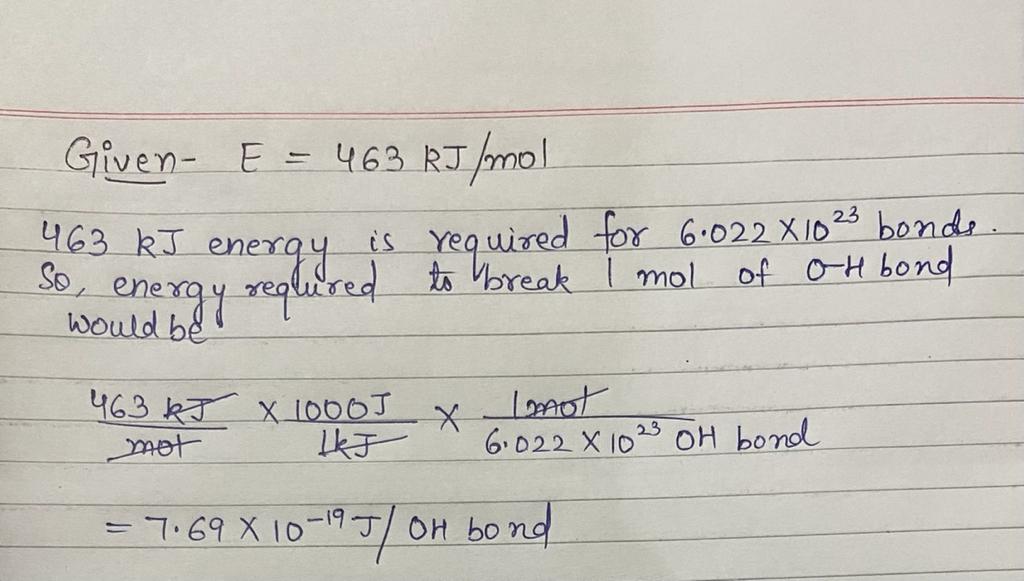 Given- E = 463 kJ/mol
463 kJ energy is required for 6.022 X 10²³ bonds.
So, energy required to break 1 mol of O-H bond
would be
463 kJ/mol X 1000J/1kJ X 1mol/6.022 X 10²³ OH bond
= 7.69 X 10⁻¹⁹ J/ OH bond